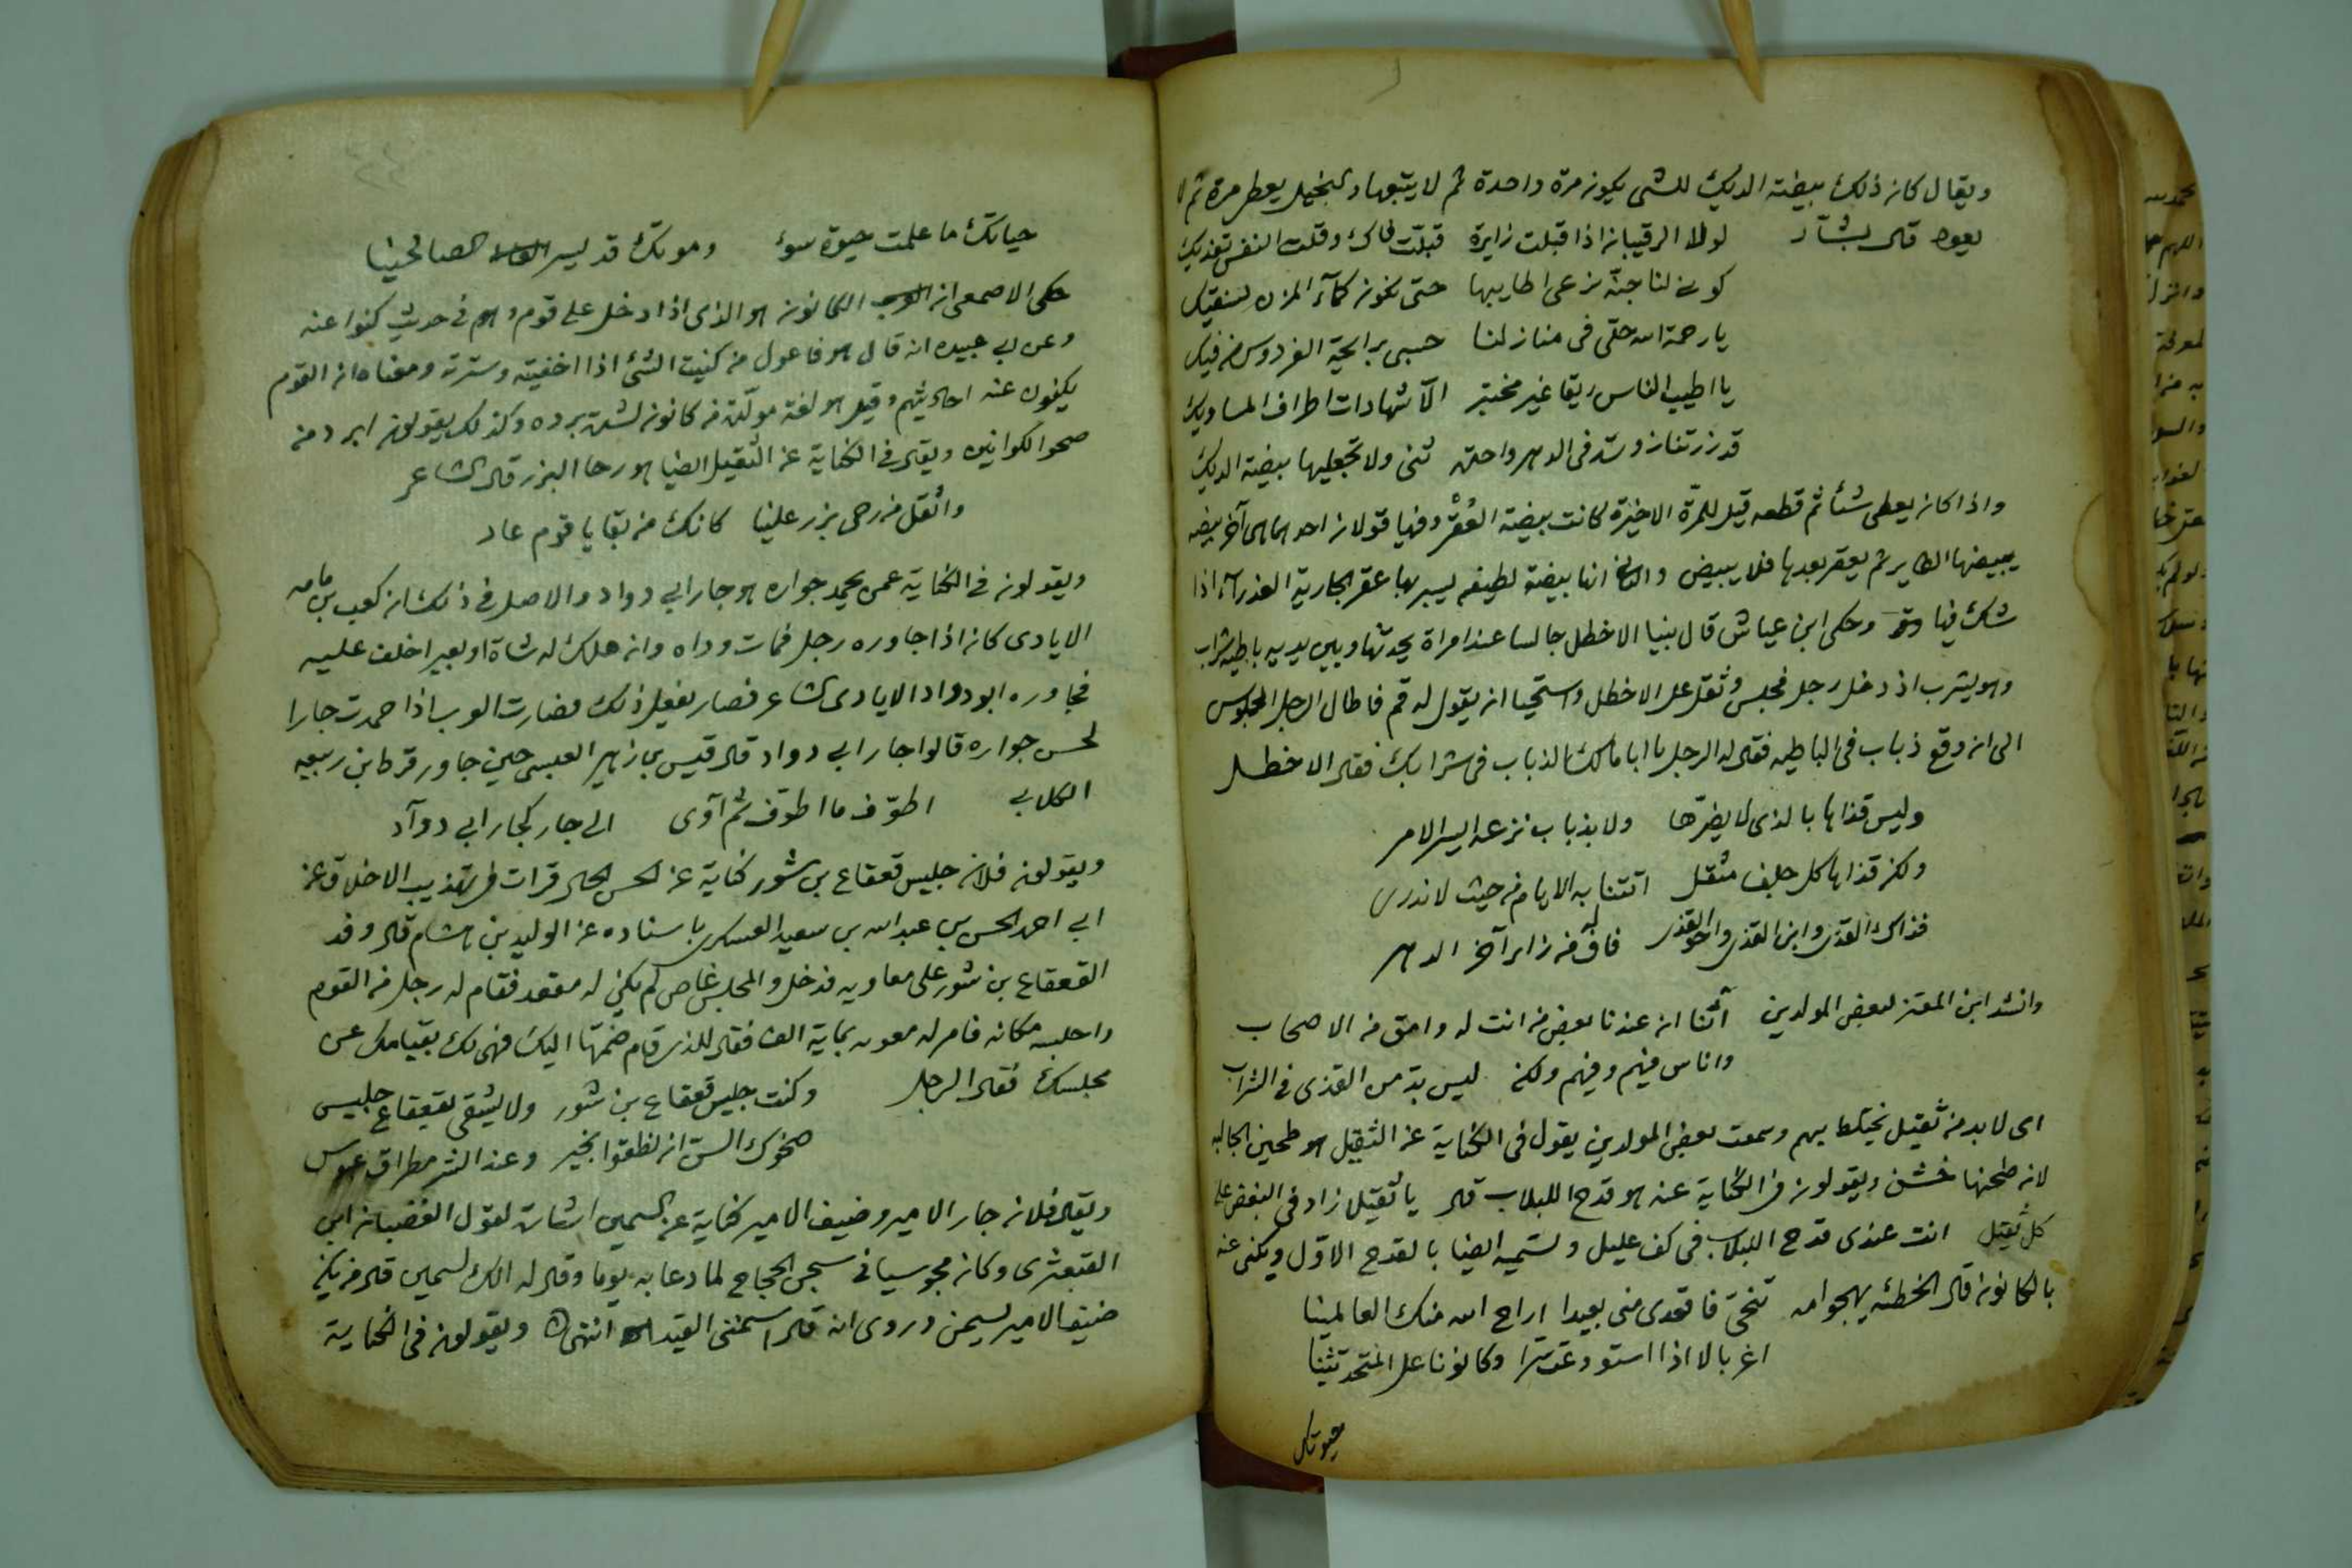 ويقال كان ذلك بيضة الديك للشى يكون مرة واحدة ثم لا يتبعها والبخيل يعطى مرة ثم لا
يعود قال بشار لولا الرقيبان اذا قبلت زايرة قبلت فاك وقلت النفس تفديك
كونى لنا جنة نرعى اطايبها حتى نكون كمآء المزن يسقيك
يا رحمة الله حلى فى منازلنا حسبى برايحة الفردوس من فيك
يا اطيب الناس ريقا غير مختبر الا شهادات اطراف المساويك
قد زرتنا زورة فى الدهر واحدة ثنى ولا تجعليها بيضة الديك
واذا كان يعطى شئا ثم قطعه قيل للمرة الاخيرة كانت بيضة العُقْر وفيها قولان احدهما هى آخر بيضه
يبيضها الطاير ثم يعقر بعدها فلا يبيض والثانى انها بيضة لطيفه يسبر بها عقر الجارية العذرآء اذا
شك فيها وحكى ابن عياش قال بينا الاخطل جالسا عند امراة يحدثها وبين يديه باطية شراب
وهو يشرب اذ دخل رجل فجلس وثقل على الاخطل واستحيا ان يقول له قم فاطال الرجل الجلوس
الى ان وقع ذباب فى الباطيه فقال له الرجل يا ابا مالك الذباب فى شرابك فقال الاخطل
وليس قذاها بالذى لا يضرها ولا بذباب نزعه ايسر الامر
ولكن قذاها كل جلف مثقل اتتنا به الايام من حيث لا ندرى
فذاك القذى وابن القذى واخو القذى فاف له من زاير آخر الدهر
وانشد ابن المعتز لبعض المولدين انت له وامق من الاصحاب
واناس فيهم وفيهم ولكن ليس بد من القذى فى الشراب
اى لا بد من ثقيل يختلط بهم وسمعت بعض المولدين يقول فى الكناية عن الثقيل هو طحين
لانه طحنها خشن ويقولون فى الكناية عنه هو قدح اللبلاب قال يا ثقيلا زاد فى البغض على
كل ثقيل انت عندى قدح اللبلاب فى كف عليل ولتسميه ايضا بالقدح الاول ويكنى عنه
بالكانون قال الحطئه يهجو امه تنحى فاقعدى منى بعيدا اراح الله منك العالمينا
اغربالا اذا استودعت سرا وكانونا على المتحدثينا
حيوتك
حياتك ما علمت حيوة سوء وموتك قد يسر الصالحينا
حكى الاصمعى ان الكانون هو الذى اذا دخل على قوم وهم فى حديث كنوا عنه
وعن ابى عبيده انه قال هو فاعول من كنيت الشئ اذا اخفيته وسترته ومعناه ان القوم
يكنون عنه احاديثهم وقيل هو لغة مولدة من كانون لشدة برده وكذلك يقولون ابرد من
صحو الكوانين ويقال فى الكناية عن الثقيل ايضا هو رحا البزر قال الشاعر
واثقل من رحى بزر علينا كانك من بقايا قوم عاد
ويقولون فى الكناية عمن يحمد جواره هو جار ابى دواد والاصل فى ذلك ان كعب بن مامه
الايادى كان اذا جاوره رجل فمات وداه وان هلك له شاة او بعير اخلف عليه
فجاوره ابو دواد الايادى الشاعر فصار يفعل ذلك فصارت العرب اذا حمدت جارا
لحسن جواره قالوا جار ابى دواد قال قيس بن زهير العبسى حين جاور قرط ابن ربيعه
الكلابى اطوف ما اطوف ثم آوى الى جار كجار ابى دوآد
ويقولون فلان جليس قعقاع بن شور كناية عن الحسن قرات فى تهذيب الاخلاق عن
ابى احمد الحسن بن عبد الله بن سعيد العسكرى باسناده عن الوليد بن هشام قال وفد
القعقاع بن شور على معاويه فدخل والمجلس غاص لم يكن له مقعد فقام له رجل من القوم
واجلسه مكانه فامر له معويه بماية الف فقال للذى قام ضمها اليك فهى لك بقيامك عن
مجلسك فقال الرجل وكنت جليس قعقاع بن شور ولا يشقى بقعقاع جليس
ضحوك السن ان نطقوا بخير وعند الشر مطراق عبوس
ويقال فلان جار الامير وضيف الامير كناية عن السمين اشارة لقول الغضبان ابن
القبعثرى وكان محبوسا فى سجن الحجاج لما دعا به يوما وقال له انك لسمين قال من يكن
ضيف الامير يسمن وروى انه قال اسمننى القيد انتهى ويقولون فى الكناية